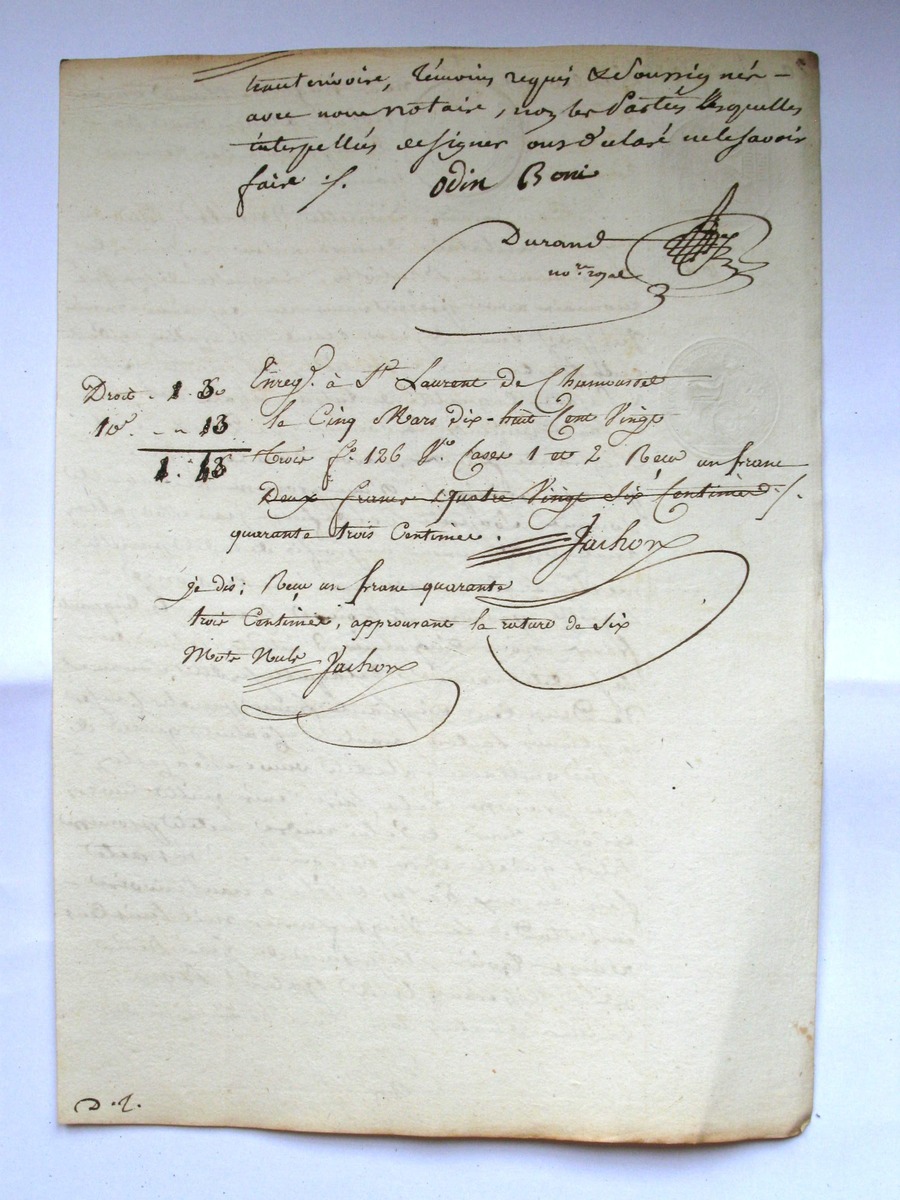 hauterivoire, témoins requis & soussignés
avec nous notaire, non les Parties lesquelles
interpellés de signer ont déclaré ne le savoir
faire ./.
odin Boni
Durand
no.re royal
Droit . 1 . 30
10e . „ 13
1 . 43
Enreg. à St Laurent de Chamousset
le Cinq Mars dix-huit Cent Vingt
trois fo. 126 Vo. Cases 1 et 2 Reçu un franc
Deux francs quatre Vingt Six Centimes ./.
quarante trois Centimes .
Jachoux
je dis; Reçu un franc quarante
trois Centimes, approuvant la rature de Six
Mots Nuls Jachoux
D . 2.